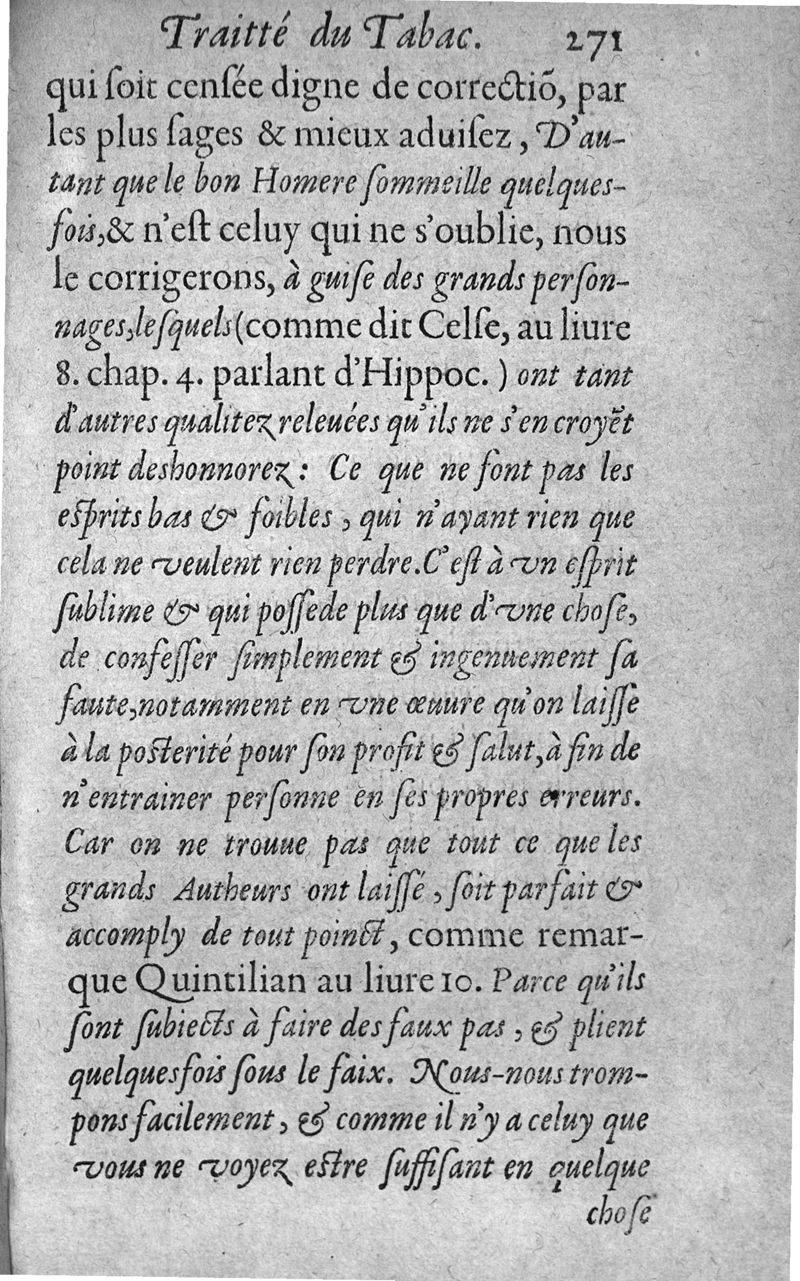 Traitté du Tabac. 271
qui ſoit cenſée digne de correctiõ, par
les plus ſages & mieux aduiſez, D'au-
tant que le bon Homere ſommeille quelques-
fois, & n'eſt celuy qui ne s'oublie, nous
le corrigerons, à guiſe des grands perſon-
nages, leſquels (comme dit Celſe, au liure
8. chap. 4. parlant d'Hippoc.) ont tant
d'autres qualitez releuées qu'ils ne s'en croyẽt
point deshonnorez: Ce que ne font pas les
eſprits bas & foibles, qui n'ayant rien que
cela ne veulent rien perdre. C'eſt à vn eſprit
ſublime & qui poſſede plus que d'vne choſe,
de confeſſer ſimplement & ingenuement ſa
faute, notamment en vne œuure qu'on laiſſe
à la poſterité pour ſon profit & ſalut, à fin de
n'entrainer perſonne en ſes propres erreurs.
Car on ne trouue pas que tout ce que les
grands Autheurs ont laiſſé, ſoit parfait &
accomply de tout poinct, comme remar-
que Quintilian au liure 10. Parce qu'ils
ſont ſubiects à faire des faux pas, & plient
quelquesfois ſous le faix. Nous-nous trom-
pons facilement, & comme il n'y a celuy que
vous ne voyez eſtre ſuffiſant en quelque
choſe